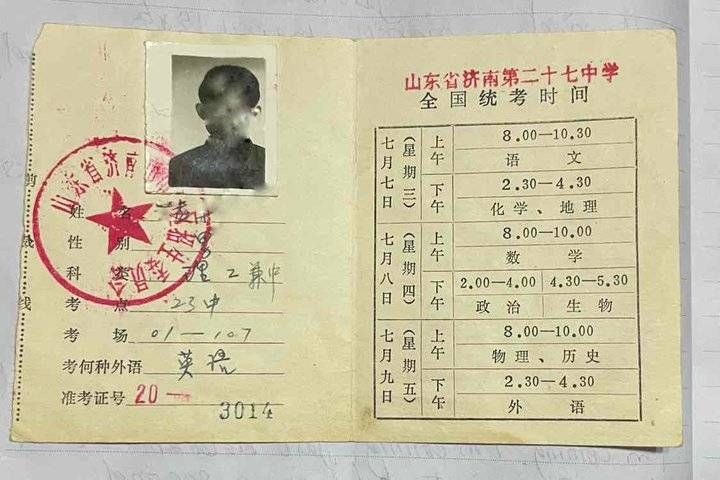 剪
裁
线
山东省济南
姓名
性别 男
科类 理工兼中
考点 23中
考场 01—107
考何种外语 英语
准考证号 20—3014
山东省济南第二十七中学
全国统考时间
七月七日（星期三） 上午 8.00—10.30
语文
下午 2.30—4.30
化学、地理
七月八日（星期四） 上午 8.00—10.00
数学
下午 2.00—4.00 4.30—5.30
政治 生物
七月九日（星期五） 上午 8.00—10.00
物理、历史
下午 2.30—4.30
外语